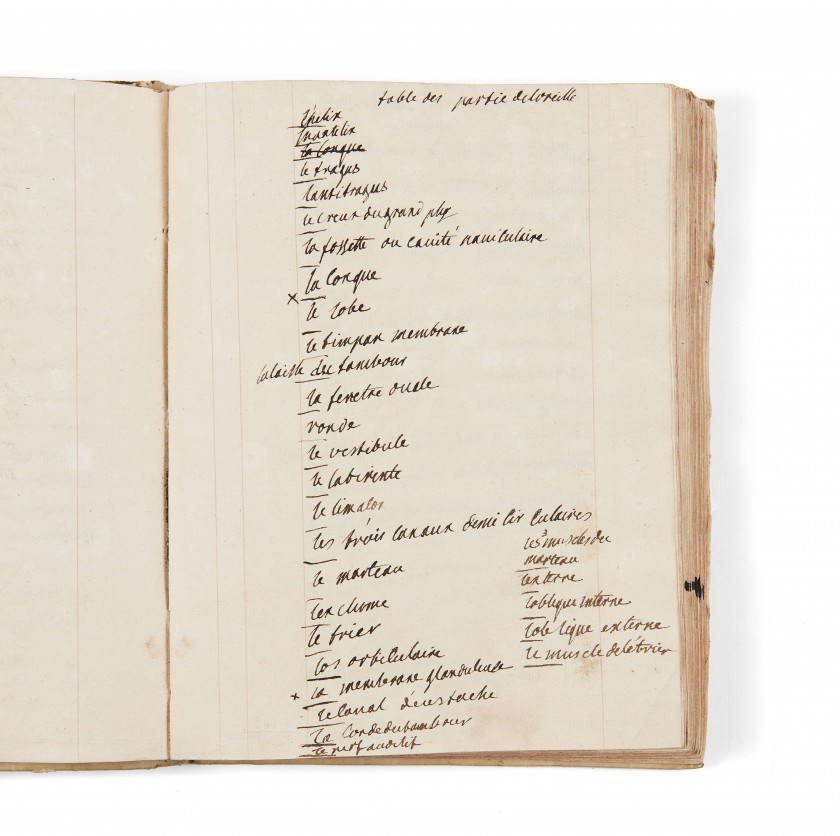 table des partie deloreille
lhelix
lantelix
la Conque
le tragus
lantitragus
le Creux du grand ply
la fossette ou cauité nauiculaire
la Conque
x
le lobe
le timpan membrane
la laisse du tambour
la fenetre ouale
ronde
le vestibule
le labirente
le limason
les trois Canaux demi Cir Culaires
le marteau
lenclume
le trier
los orbiculaire
x la membrane glanduleuse
le Canal deustache
la Corde du tambour
le nerf auditif
les 3 muscles du
marteau
lexterne
loblique interne
loblique externe
le muscle de létrier